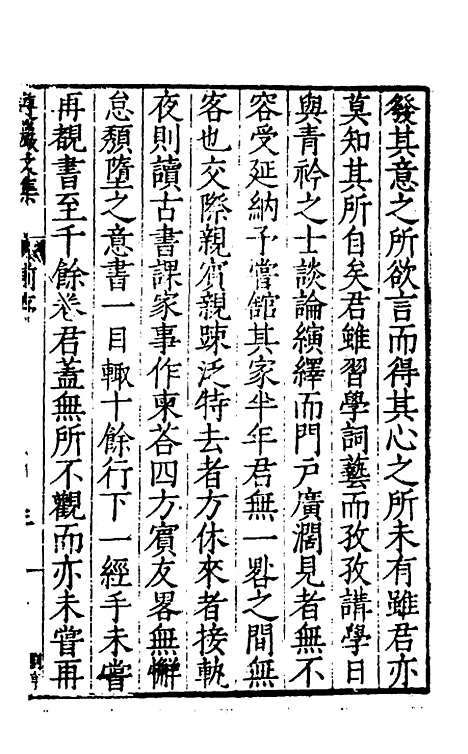 發其意之所欲言而得其心之所未有雖君亦
莫知其所自矣君雖習學詞藝而孜孜講學日
與青衿之士談論縯繹而門戶廣濶見者無不
容受延納予嘗舘其家半年君無一晷之間無
客也交際親賓親踈泛特去者方休來者接軌
夜則讀古書課家事作柬荅四方賓友畧無懈
怠頹墮之意書一目輙十餘行下一經手未嘗
再覩書至千餘卷君葢無所不觀而亦未嘗再
遵巖文集